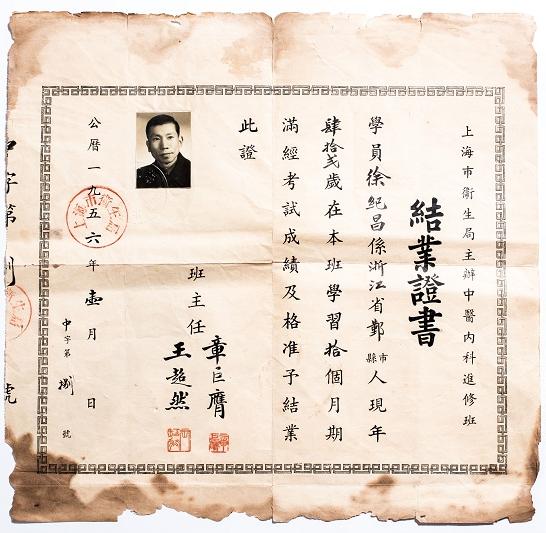 上海市衞生局主辦中醫內科進修班
結業證書
學員徐紀昌係浙江省鄞市縣人現年
肆拾貳歲在本班學習拾個月期
滿經考試成績及格准予結業
此證
班主任
章巨膺
王超然
公曆一九五六年壹月 日
中字第 捌 號
上海市衞生局
中字第 捌 號